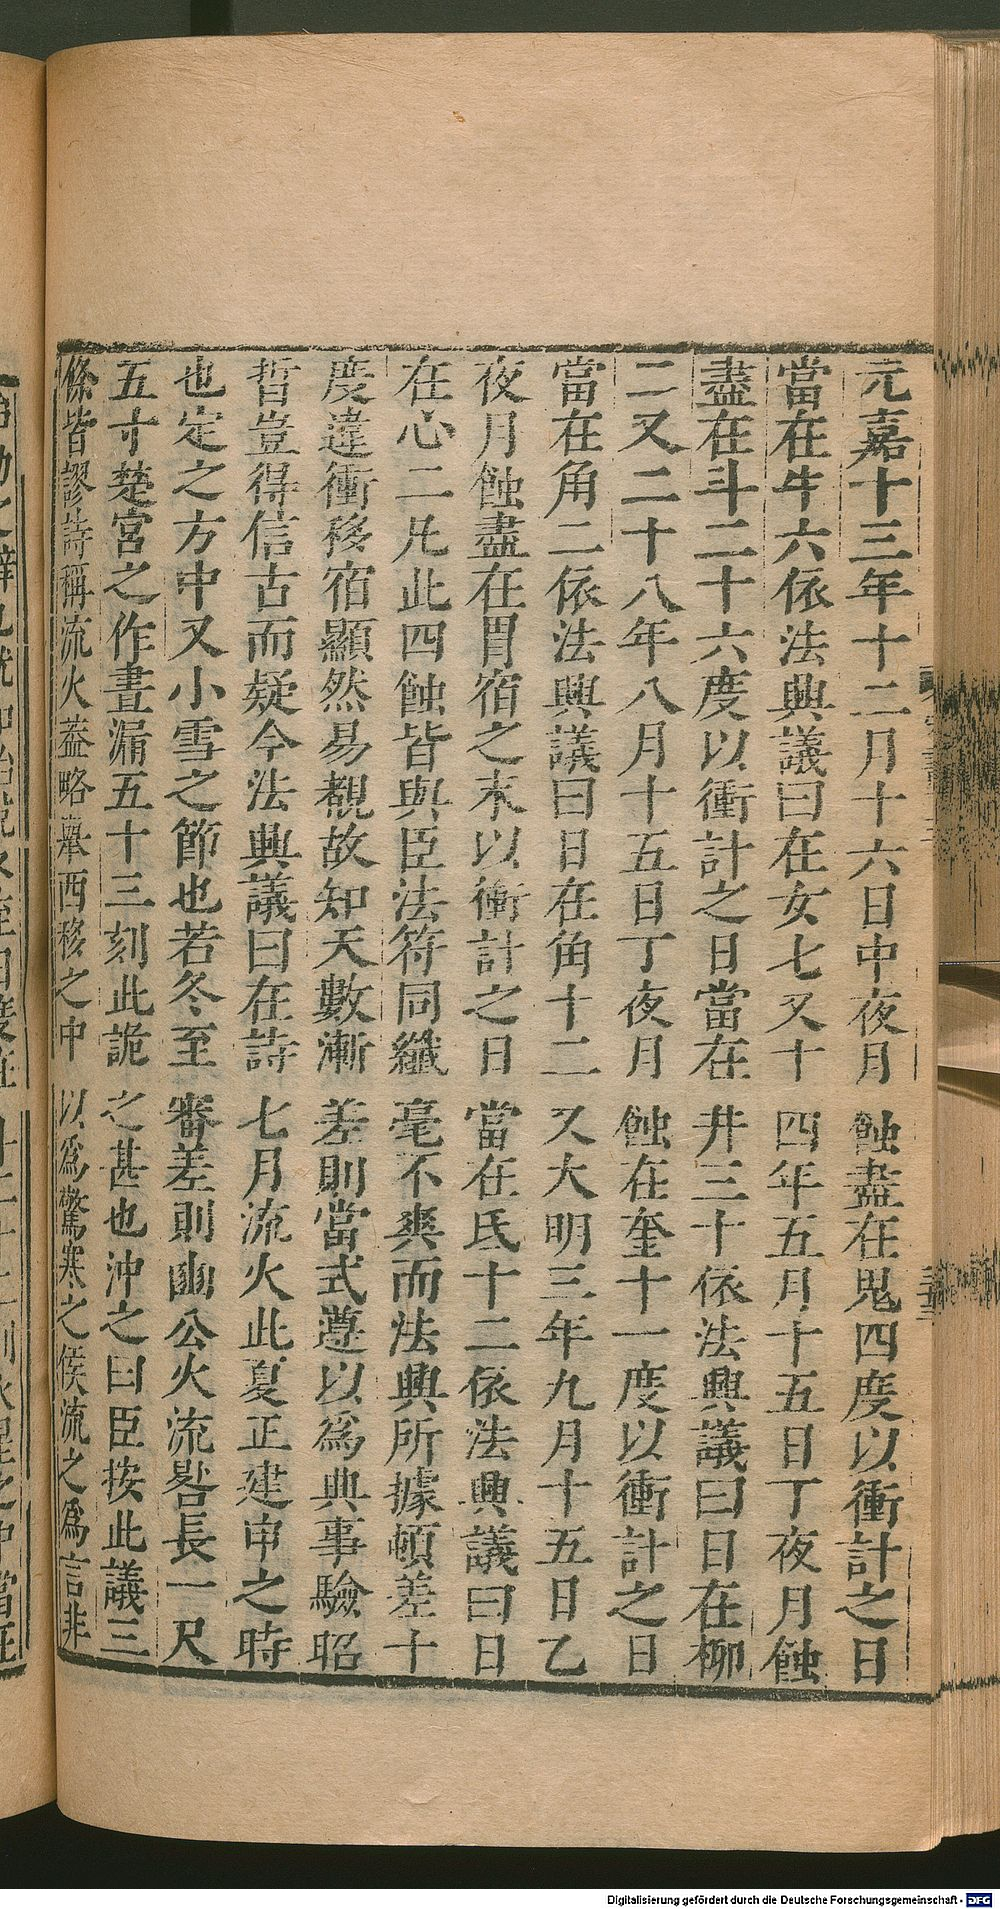 元嘉十三年十二月十六日中夜月蝕盡在鬼四度以衝計之日
當在牛六依法興議曰在女七又十四年五月十五日丁夜月蝕
盡在斗二十六度以衝計之日當在井三十依法興議曰日在柳
二又二十八年八月十五日丁夜月蝕在奎十一度以衝計之日
當在角二依法興議曰日在角十二又大明三年九月十五日乙
夜月蝕盡在胃宿之末以衝計之日當在氐十二依法興議曰日
在心二凡此四蝕皆與臣法符同纖毫不爽而法興所據頓差十
度違衝移宿顯然易覩故知天數漸差則當式遵以爲典事驗昭
晢豈得信古而疑今法興議曰在詩七月流火此夏正建申之時
也定之方中又小雪之節也若冬至審差則豳公火流晷長一尺
五寸楚宮之作晝漏五十三刻此詭之甚也沖之曰臣按此議三
條皆謬詩稱流火葢略舉西移之中以爲驚寒之候流之爲言非
Digitalisierung gefördert durch die Deutsche Forschungsgemeinschaft - DFG